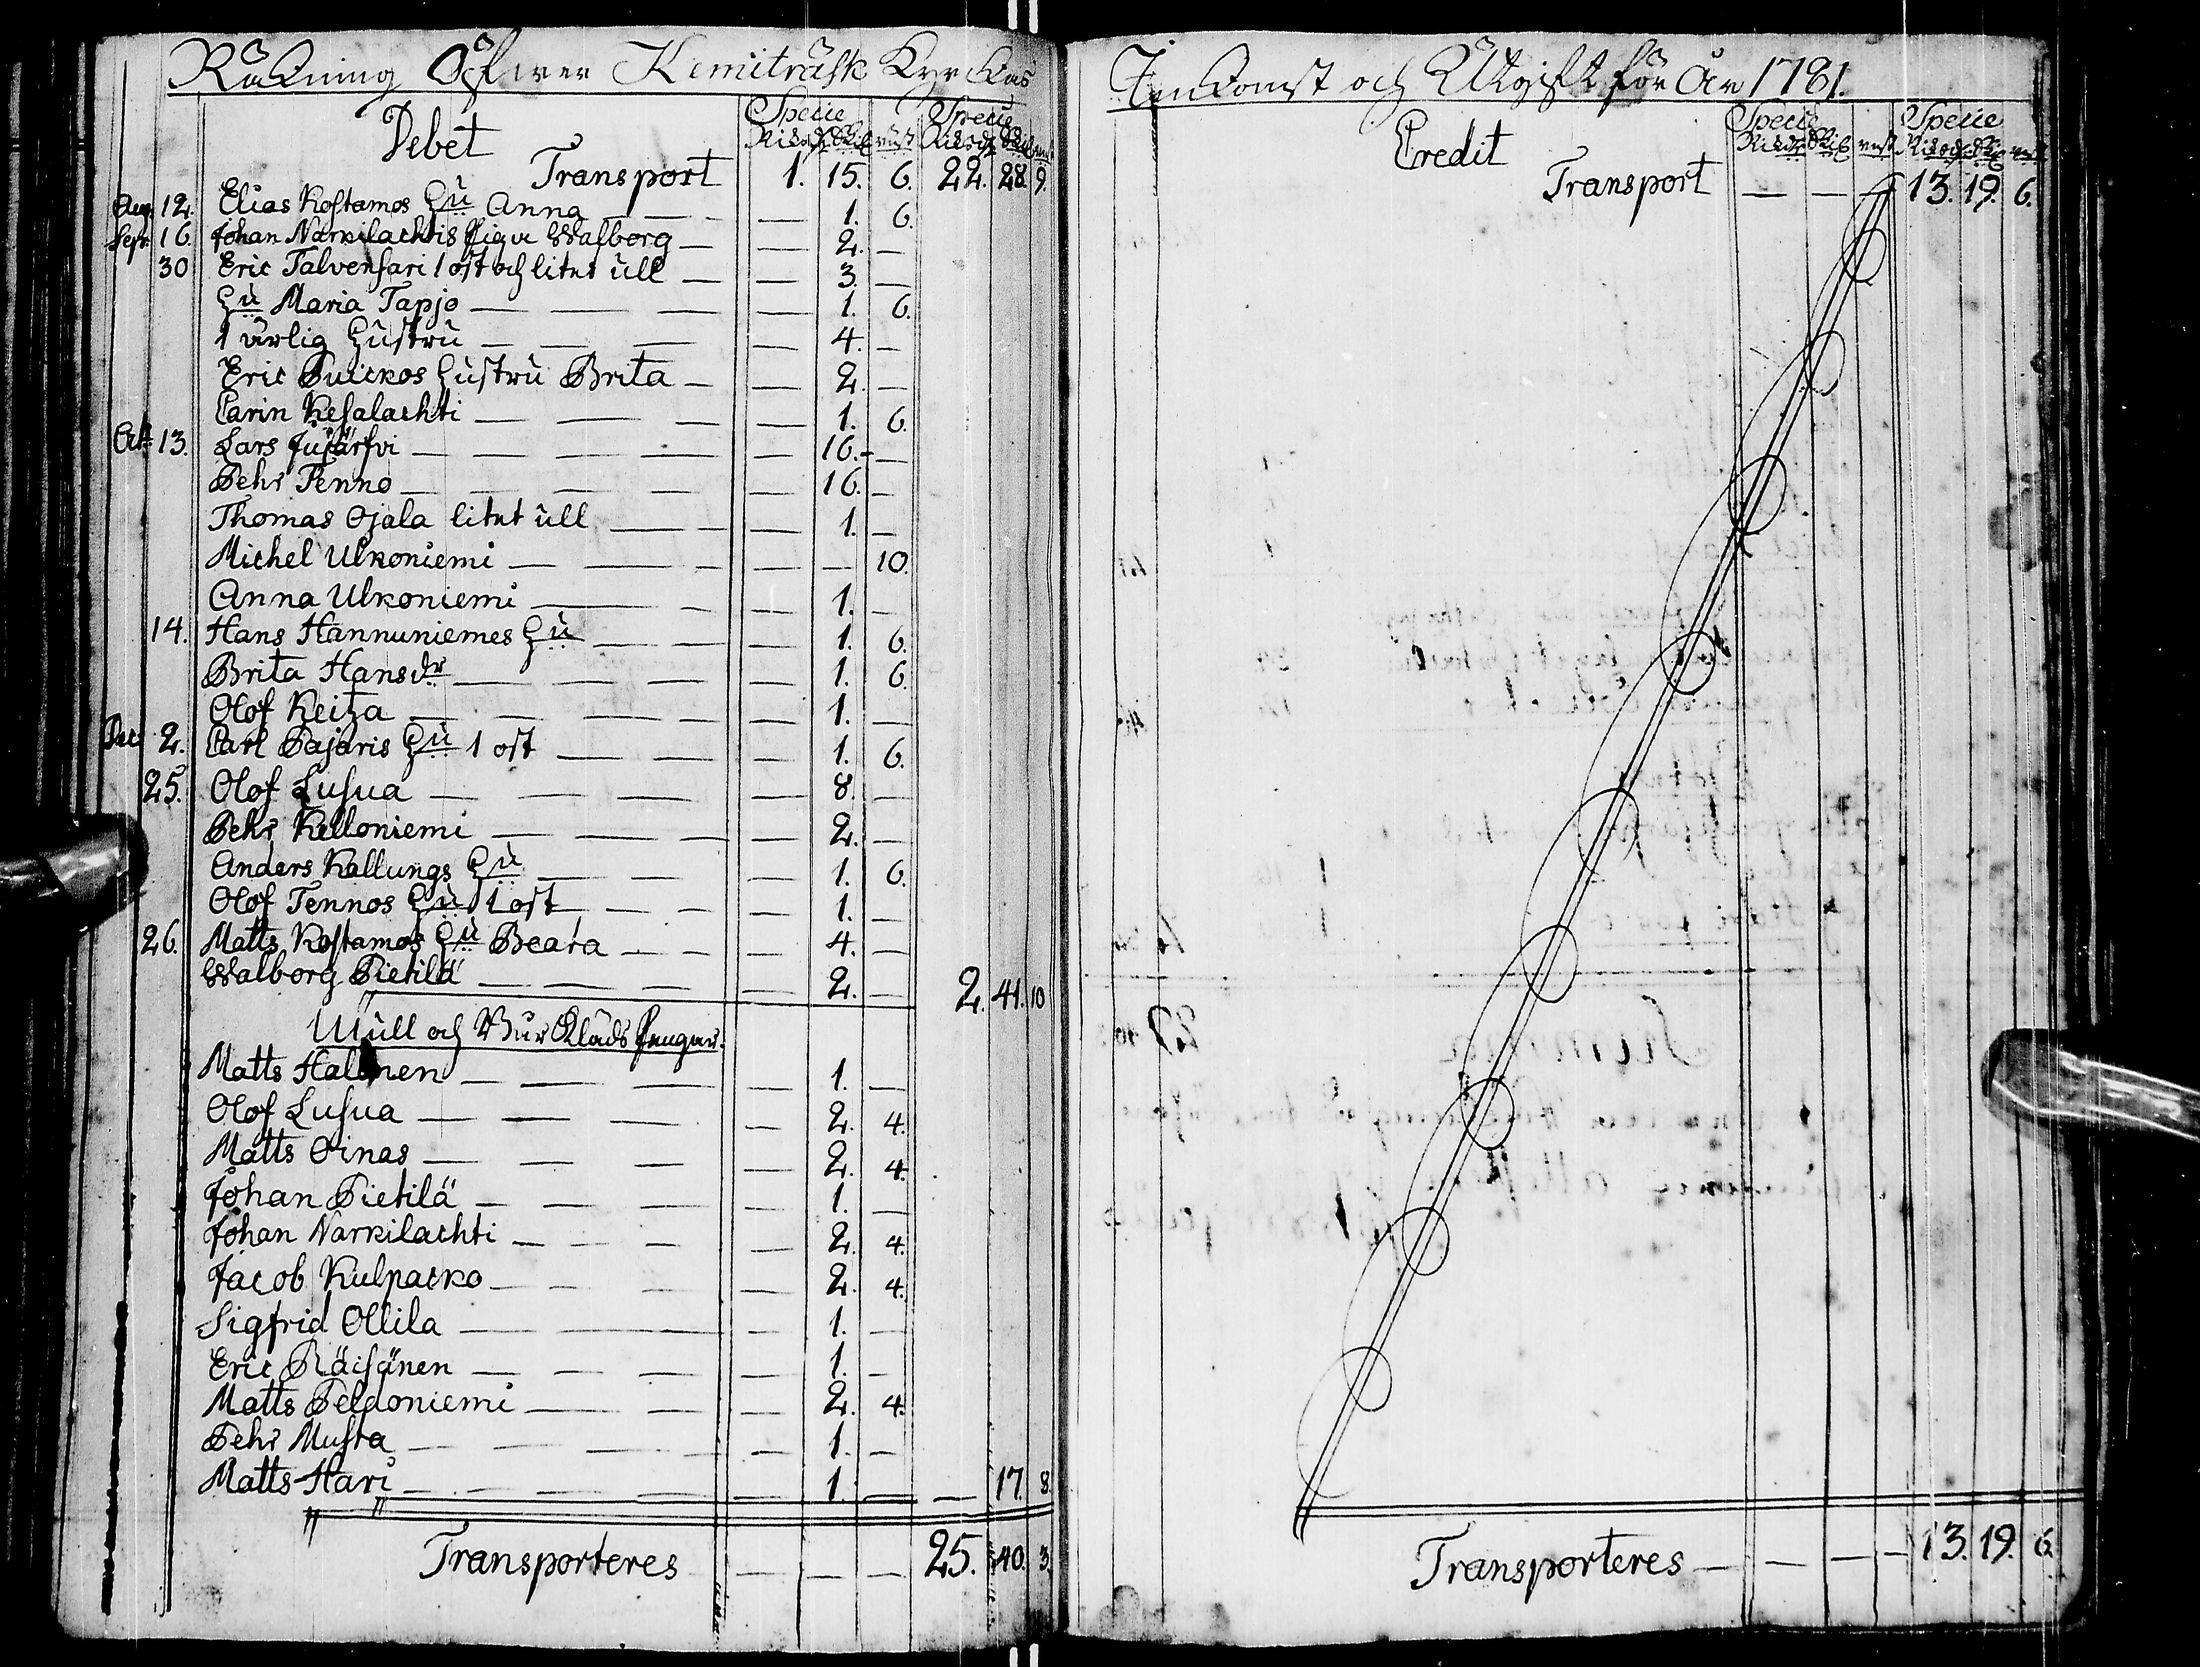 Räkning Öfwer Kemiträsk Kyrckas
Debet Specie Riksdr Skil. runst. Specie Riksdr Skil. runst.
Transport 1. 15. 6. 22. 28. 9.
Aug. 12. Elias Kostamos Hu Anna — — — 1. 6.
Sept. 16. Johan Narkilachtis Piga Walborg — — 2. —
30 Eric Talvensari 1 ost och litet ull — — 3. —
Hu Maria Tapjo — — — — 1. 6.
1 ärlig Hustru — — — — 4. —
Eric Puickos Hustru Brita — — 2. —
Carin Kesalachti — — — — 1. 6.
Oct. 13. Lars Jujärfvi — — — — 16. —
Pehr Tenno — — — — 16. —
Thomas Ojala litet ull — — — 1. —
Michel Ulkoniemi — — — — — 10.
Anna Ulkoniemi — — — 1. —
14. Hans Hannuniemes Hu — — — 1. 6.
Brita Hansdr — — — — 1. 6.
Olof Keitza — — — — 1. —
Dec. 2. Carl Pajaris Hu 1 ost — — — — 1. 6.
25. Olof Lusua — — — — — 8. —
Pehr Kelloniemi — — — — 2. —
Anders Kallungs Hu — — — 1. 6.
Olof Tennos Hu 1 ost — — — — 1. —
26. Matts Kostamos Hu Beata — — — 4. —
Walborg Pietilä — — — — 2. — 2. 41. 10
Mull och Bur Kläds Pengar.
Matts Halonen — — — — 1. —
Olof Lusua — — — — 2. 4.
Matts Oinas — — — — 2. 4.
Johan Pietilä — — — — 1. —
Johan Narkilachti — — — — 2. 4.
Jacob Kulpacko — — — — 2. 4.
Sigfrid Ollila — — — — 1. —
Eric Räisänen — — — — 1. —
Matts Peldoniemi — — — 2. 4.
Pehr Musta — — — — — 1. —
Matts Hari — — — — — 1. — — 17. 8.
Transporteres — — — 25. 40. 3.
Inkomst och Utgift för År 1781.
Credit Specie Riksdr Skil. runst Specie Riksdr Skil. runst
Transport — — — 13. 19. 6.
Transporteres — — — — 13. 19. 6.